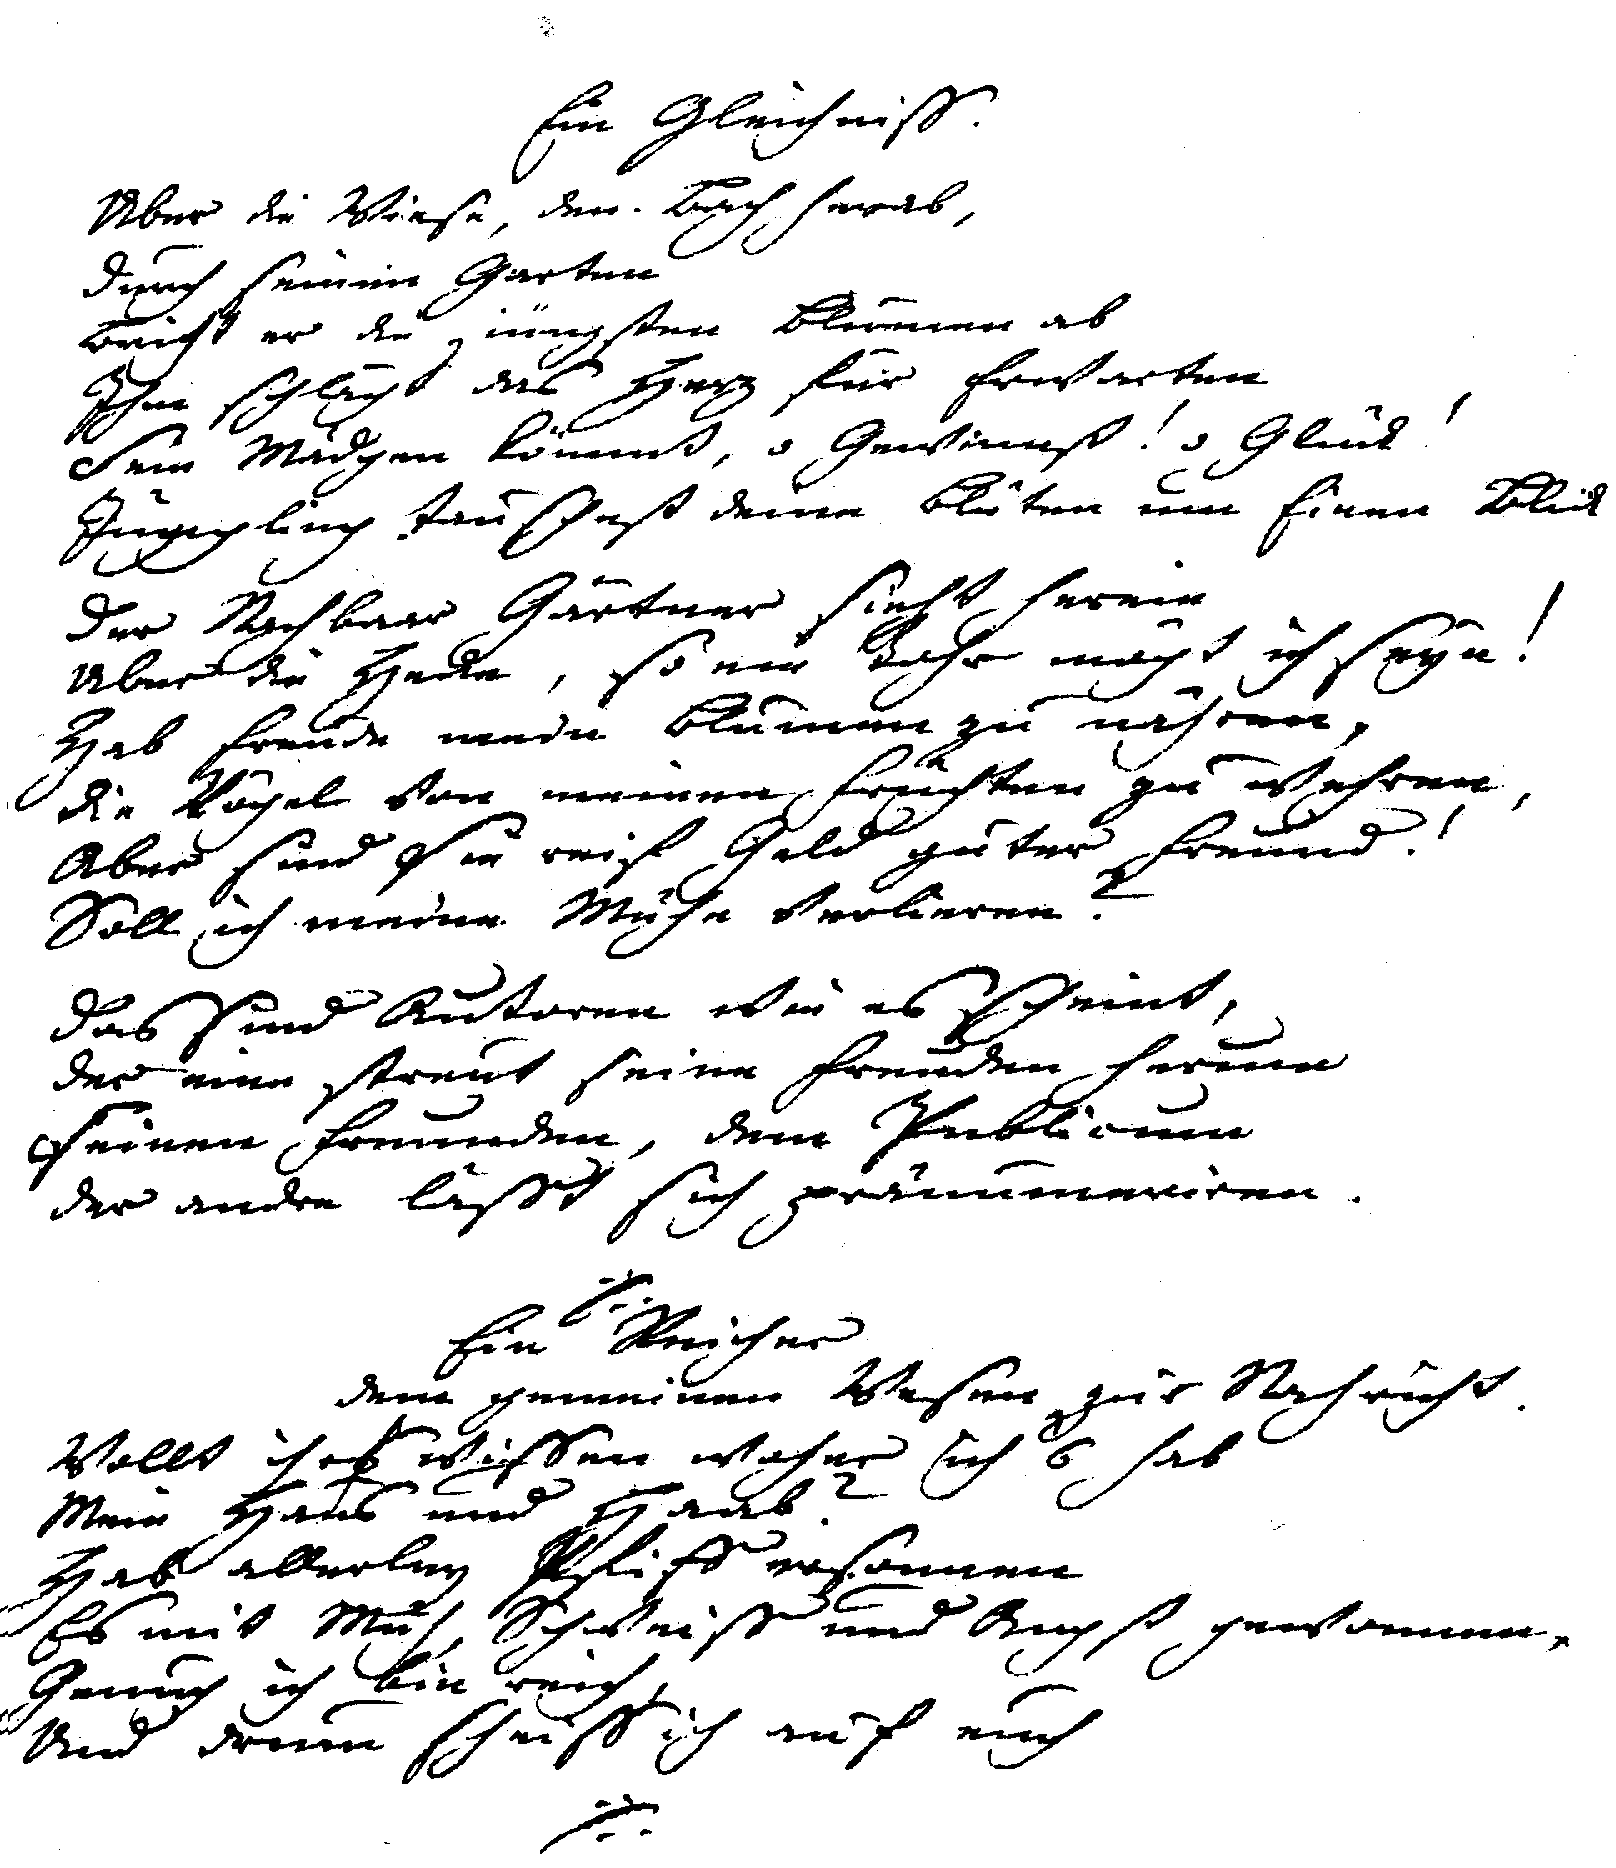 Ein Gleichniss.
Uber die Wiese, den Bach herab,
durch seinen Garten
bricht er die jüngsten Blumen ab
Ihm schlägt das Herz für Erwarten
Sein Mädgen kömmt, o Gewinnst! o Glück!
Jüngling tauschest deine Blüten um Einen Blick
Der Nachbaar Gärtner sieht herein
Uber die Hecke, so ein Tohr mögt ich seyn!
Hab Freude mein Blumen zu nähren,
die Vögel von meinen Früchten zu wehren,
Aber sind sie reif Geld guter Freund!
Soll ich meine Mühe verlieren?
Das sind Autoren wie es scheint,
der eine streut seine Freuden herum
seinen Freunden, dem Publicum
der andre lässt sich pränumeriren.
Ein Reicher
dem gemeinen Wesen zur Nachricht.
Wollt ihrs wissen woher ich's hab
Mein Haus und Haab?
Hab allerley Pfiff ersonnen
Es mit Müh, Schweiss und Angst gewonnen,
Genug ich bin reich,
Und drum scheiss ich auf euch